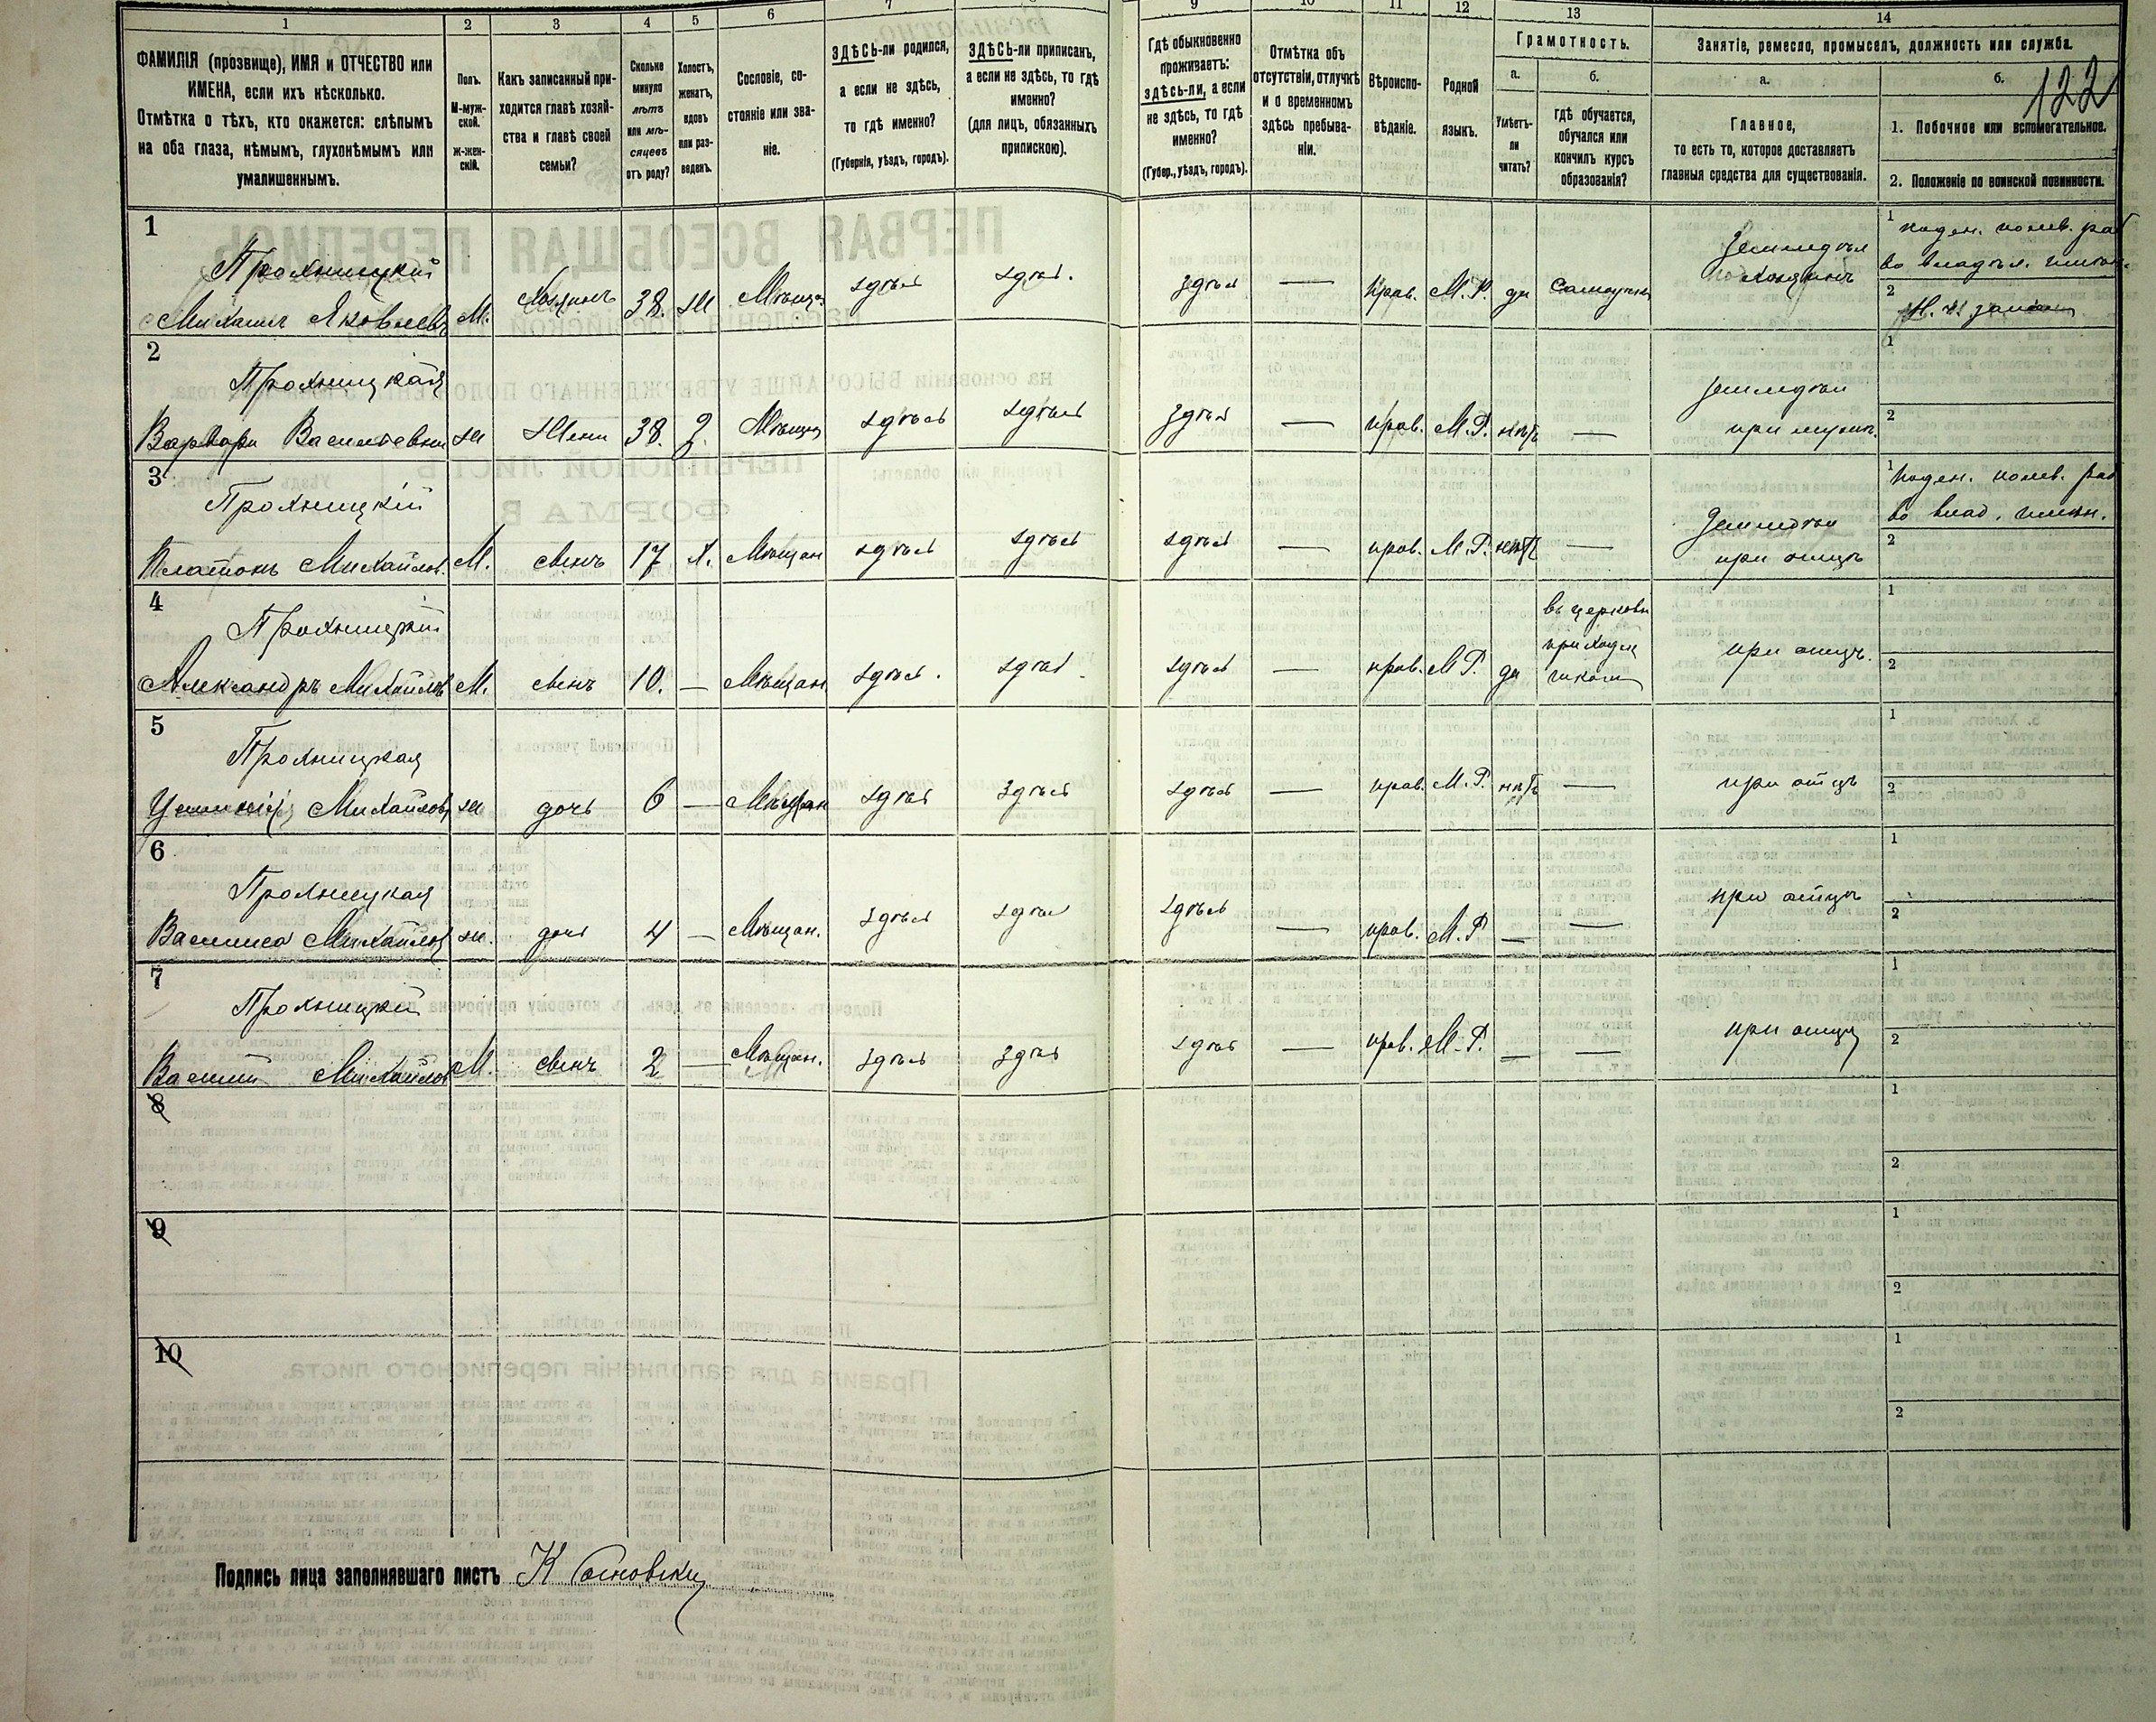 1 2 3 4 5 6 7 9 10 11 12 13 14
ФАМИЛІЯ (прозвище), ИМЯ и ОТЧЕСТВО или
ИМЕНА, если ихъ нѣсколько.
Отмѣтка о тѣхъ, кто окажется: слѣпымъ
на оба глаза, нѣмымъ, глухонѣмымъ или
умалишеннымъ.
Полъ.
М-муж-
ской.
ж-жен-
скій.
Какъ записанный при-
ходится главѣ хозяй-
ства и главѣ своей
семьи?
Сколько
минуло
лѣтъ
или мѣ-
сяцевъ
отъ роду?
Холостъ,
женатъ,
вдовъ
или раз-
веденъ.
Сословіе, со-
стояніе или зва-
ніе.
ЗДѢСЬ-ли родился,
а если не здѣсь,
то гдѣ именно?
(Губернія, уѣздъ, городъ).
ЗДѢСЬ-ли приписанъ,
а если не здѣсь, то гдѣ
именно?
(для лицъ, обязанныхъ
припискою).
Гдѣ обыкновенно
проживаетъ:
здѣсь-ли, а если
не здѣсь, то гдѣ
именно?
(Губер., уѣздъ, городъ).
Отмѣтка объ
отсутствіи, отлучкѣ
и о временномъ
здѣсь пребыва-
ніи.
Вѣроиспо-
вѣданіе.
Родной
языкъ.
Грамотность.
а.
Умѣетъ-
ли
читать?
б.
гдѣ обучается,
обучался или
кончилъ курсъ
образованія?
Занятіе, ремесло, промыселъ, должность или служба.
а.
Главное,
то есть то, которое доставляетъ
главныя средства для существованія.
б.
122
1. Побочное или вспомогательное.
2. Положеніе по воинской повинности.
1
Прохницкій
Михаилъ Яковлевъ М. Хозяинъ 38. ж Мѣщан здѣсь здѣсь. здѣсь — прав. М.Р. да самоучка
Земледѣл
хозяинъ
1 поден. полев. раб
во владѣл. имѣн.
2
2
Прохницкая
Варвара Васильевна ж Жена 38. З. Мѣщан здѣсь здѣсь здѣсь — прав. М.Р. нѣтъ —
Земледѣл
при мужѣ.
1
2
3
Прохницкій
Платонъ Михайлов. М. сынъ 17 Х. Мѣщан здѣсь здѣсь здѣсь — прав. М.Р. нѣтъ —
Земледѣл
при отцѣ
1 поден. полев. раб
во влад. имѣн.
2
4
Прохницкій
Александръ Михайловъ М. сынъ 10. — Мѣщан здѣсь. здѣсь здѣсь — прав. М.Р. да
въ церковн
приходск
школѣ
при отцѣ.
1
2
5
Прохницкая
Михайлов ж дочь 6 — Мѣщан здѣсь здѣсь здѣсь — прав. М.Р. нѣтъ — при отцѣ
1
2
6
Прохницкая
Василиса Михайлов ж. дочь 4 — Мѣщан. здѣсь здѣсь здѣсь — прав. М.Р — — при отцѣ
1
2
7
Прохницкій
Василий Михайлов М. сынъ 2 — Мѣщан. здѣсь здѣсь здѣсь — прав. М.Р. — — при отцѣ
1
2
8
1
2
9
1
2
10
1
2
Подпись лица заполнявшаго листъ К Сосновскій